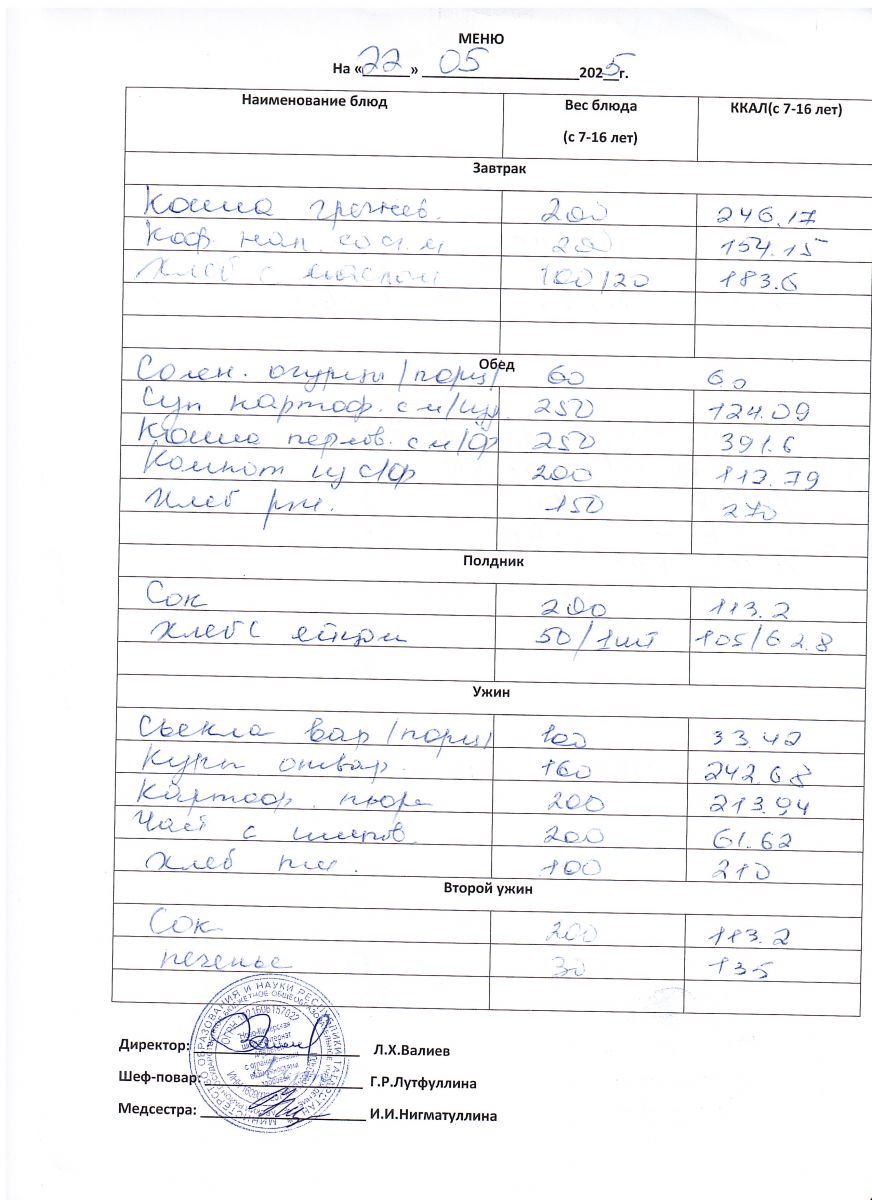 МЕНЮ
На «22» 05 2025г.
Наименование блюд Вес блюда (с 7-16 лет) ККАЛ(с 7-16 лет)
Завтрак
Каша гречнев. 200 246.17
Коф. нап. со сг. м 200 154.15
Хлеб с маслом 100/20 183.6
Обед
Солен. огурцы /порц/ 60 6.0
Суп картоф. с м/изд. 250 124.09
Каша перлов. с м/ф 250 391.6
Компот из с/ф 200 113.79
Хлеб рж. 150 270
Полдник
Сок 200 113.2
Хлеб с яйцом 50/1шт 105/62.8
Ужин
Свекла вар /порц/ 100 33.42
Куры отвар. 160 242.68
Картоф. пюре 200 213.94
Чай с шипов. 200 61.62
Хлеб пш. 100 210
Второй ужин
Сок 200 113.2
печенье 30 135
Директор: Л.Х.Валиев
Шеф-повар: Г.Р.Лутфуллина
Медсестра: И.И.Нигматуллина